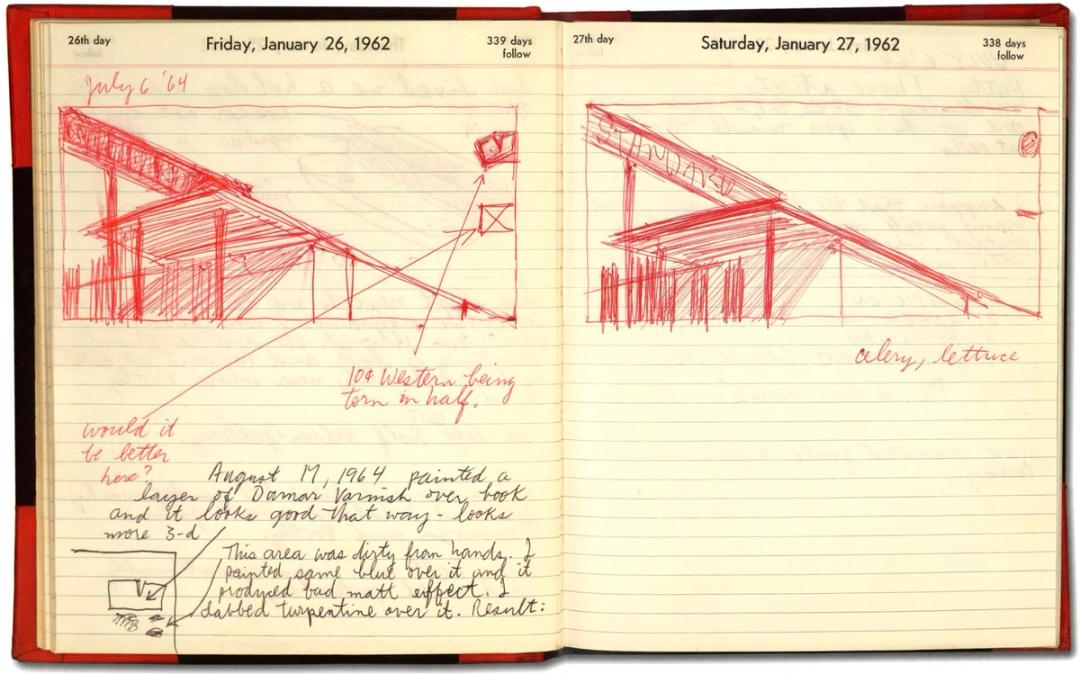 26th day
Friday, January 26, 1962
339 days
follow
July 6 '64
10¢ Western being
torn in half.
would it
be better
here?
August 17, 1964 painted a
layer of Damar Varnish over book
and it looks good that way - looks
more 3-d
This area was dirty from hands. I
painted some blue over it and it
produced bad matt effect. I
dabbed turpentine over it. Result:
27th day
Saturday, January 27, 1962
338 days
follow
STANDARD
celery, lettuce